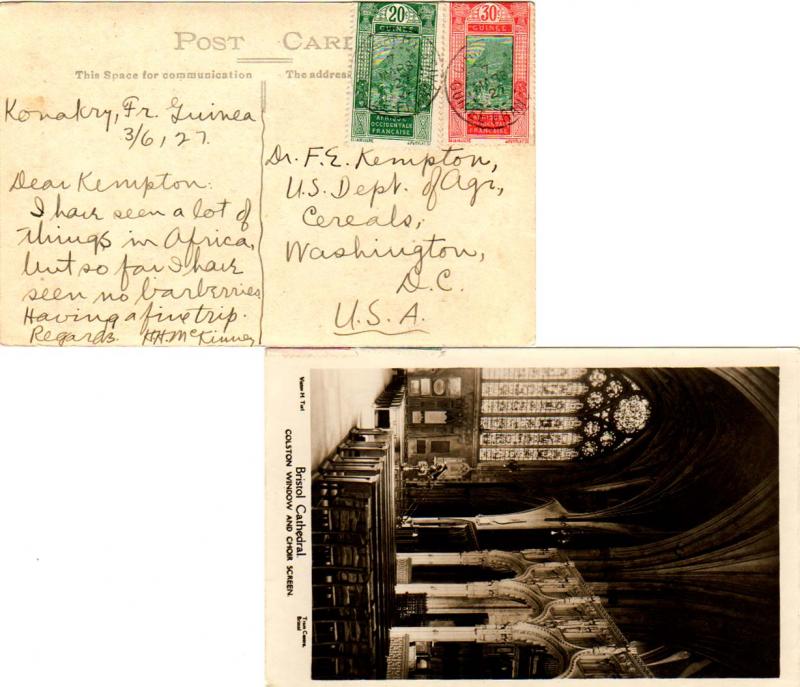 POST CARD
This Space for communication
The address
20
GUINÉE
AFRIQUE
OCCIDENTALE
FRANÇAISE
30
GUINÉE
AFRIQUE
OCCIDENTALE
FRANÇAISE
Konakry, Fr. Guinea
3/6, 27.
Dear Kempton:
I have seen a lot of
things in Africa,
but so far I have
seen no barberries
Having a fine trip.
Regards. H.H. McKinney
Dr. F.E. Kempton,
U.S. Dept. of Agr.,
Cereals,
Washington,
D.C.
U.S.A.
Bristol Cathedral.
COLSTON WINDOW AND CHOIR SCREEN.